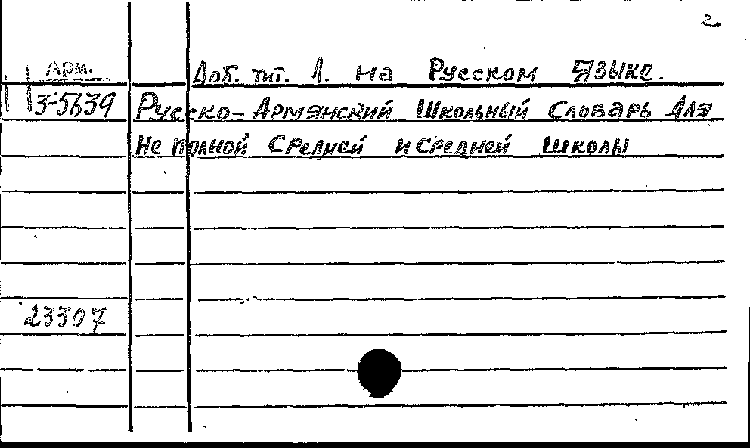 2
Арм.
Доб. тит. л. на Русском языке.
3-5639
Русско-Армянский Школьный Словарь Для
Не полной Средней и средней школы
23307